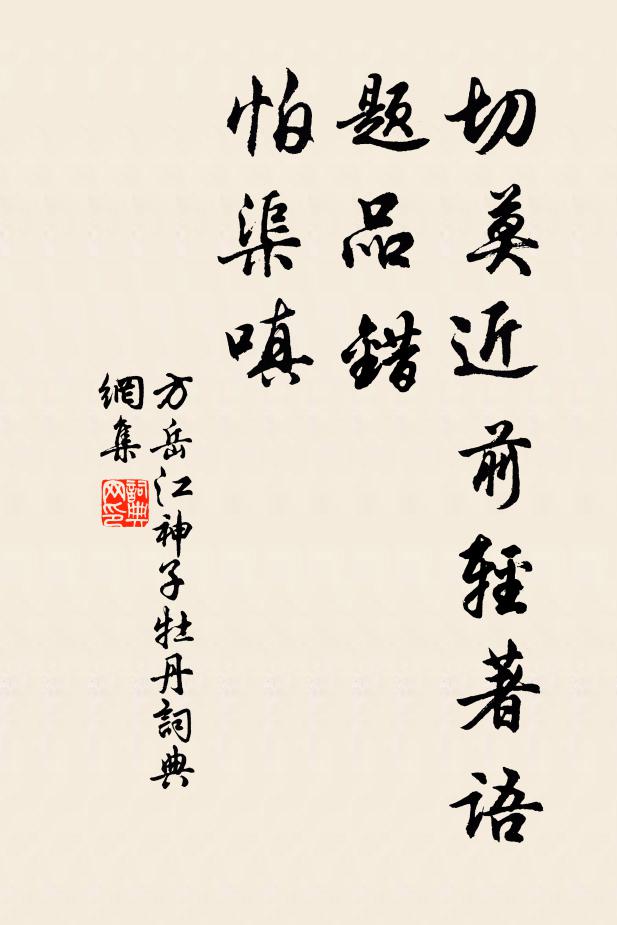 切莫近前輕著語
題品錯
怕渠嗔
方岳江神子牡丹詞典
網集
詞典
网印